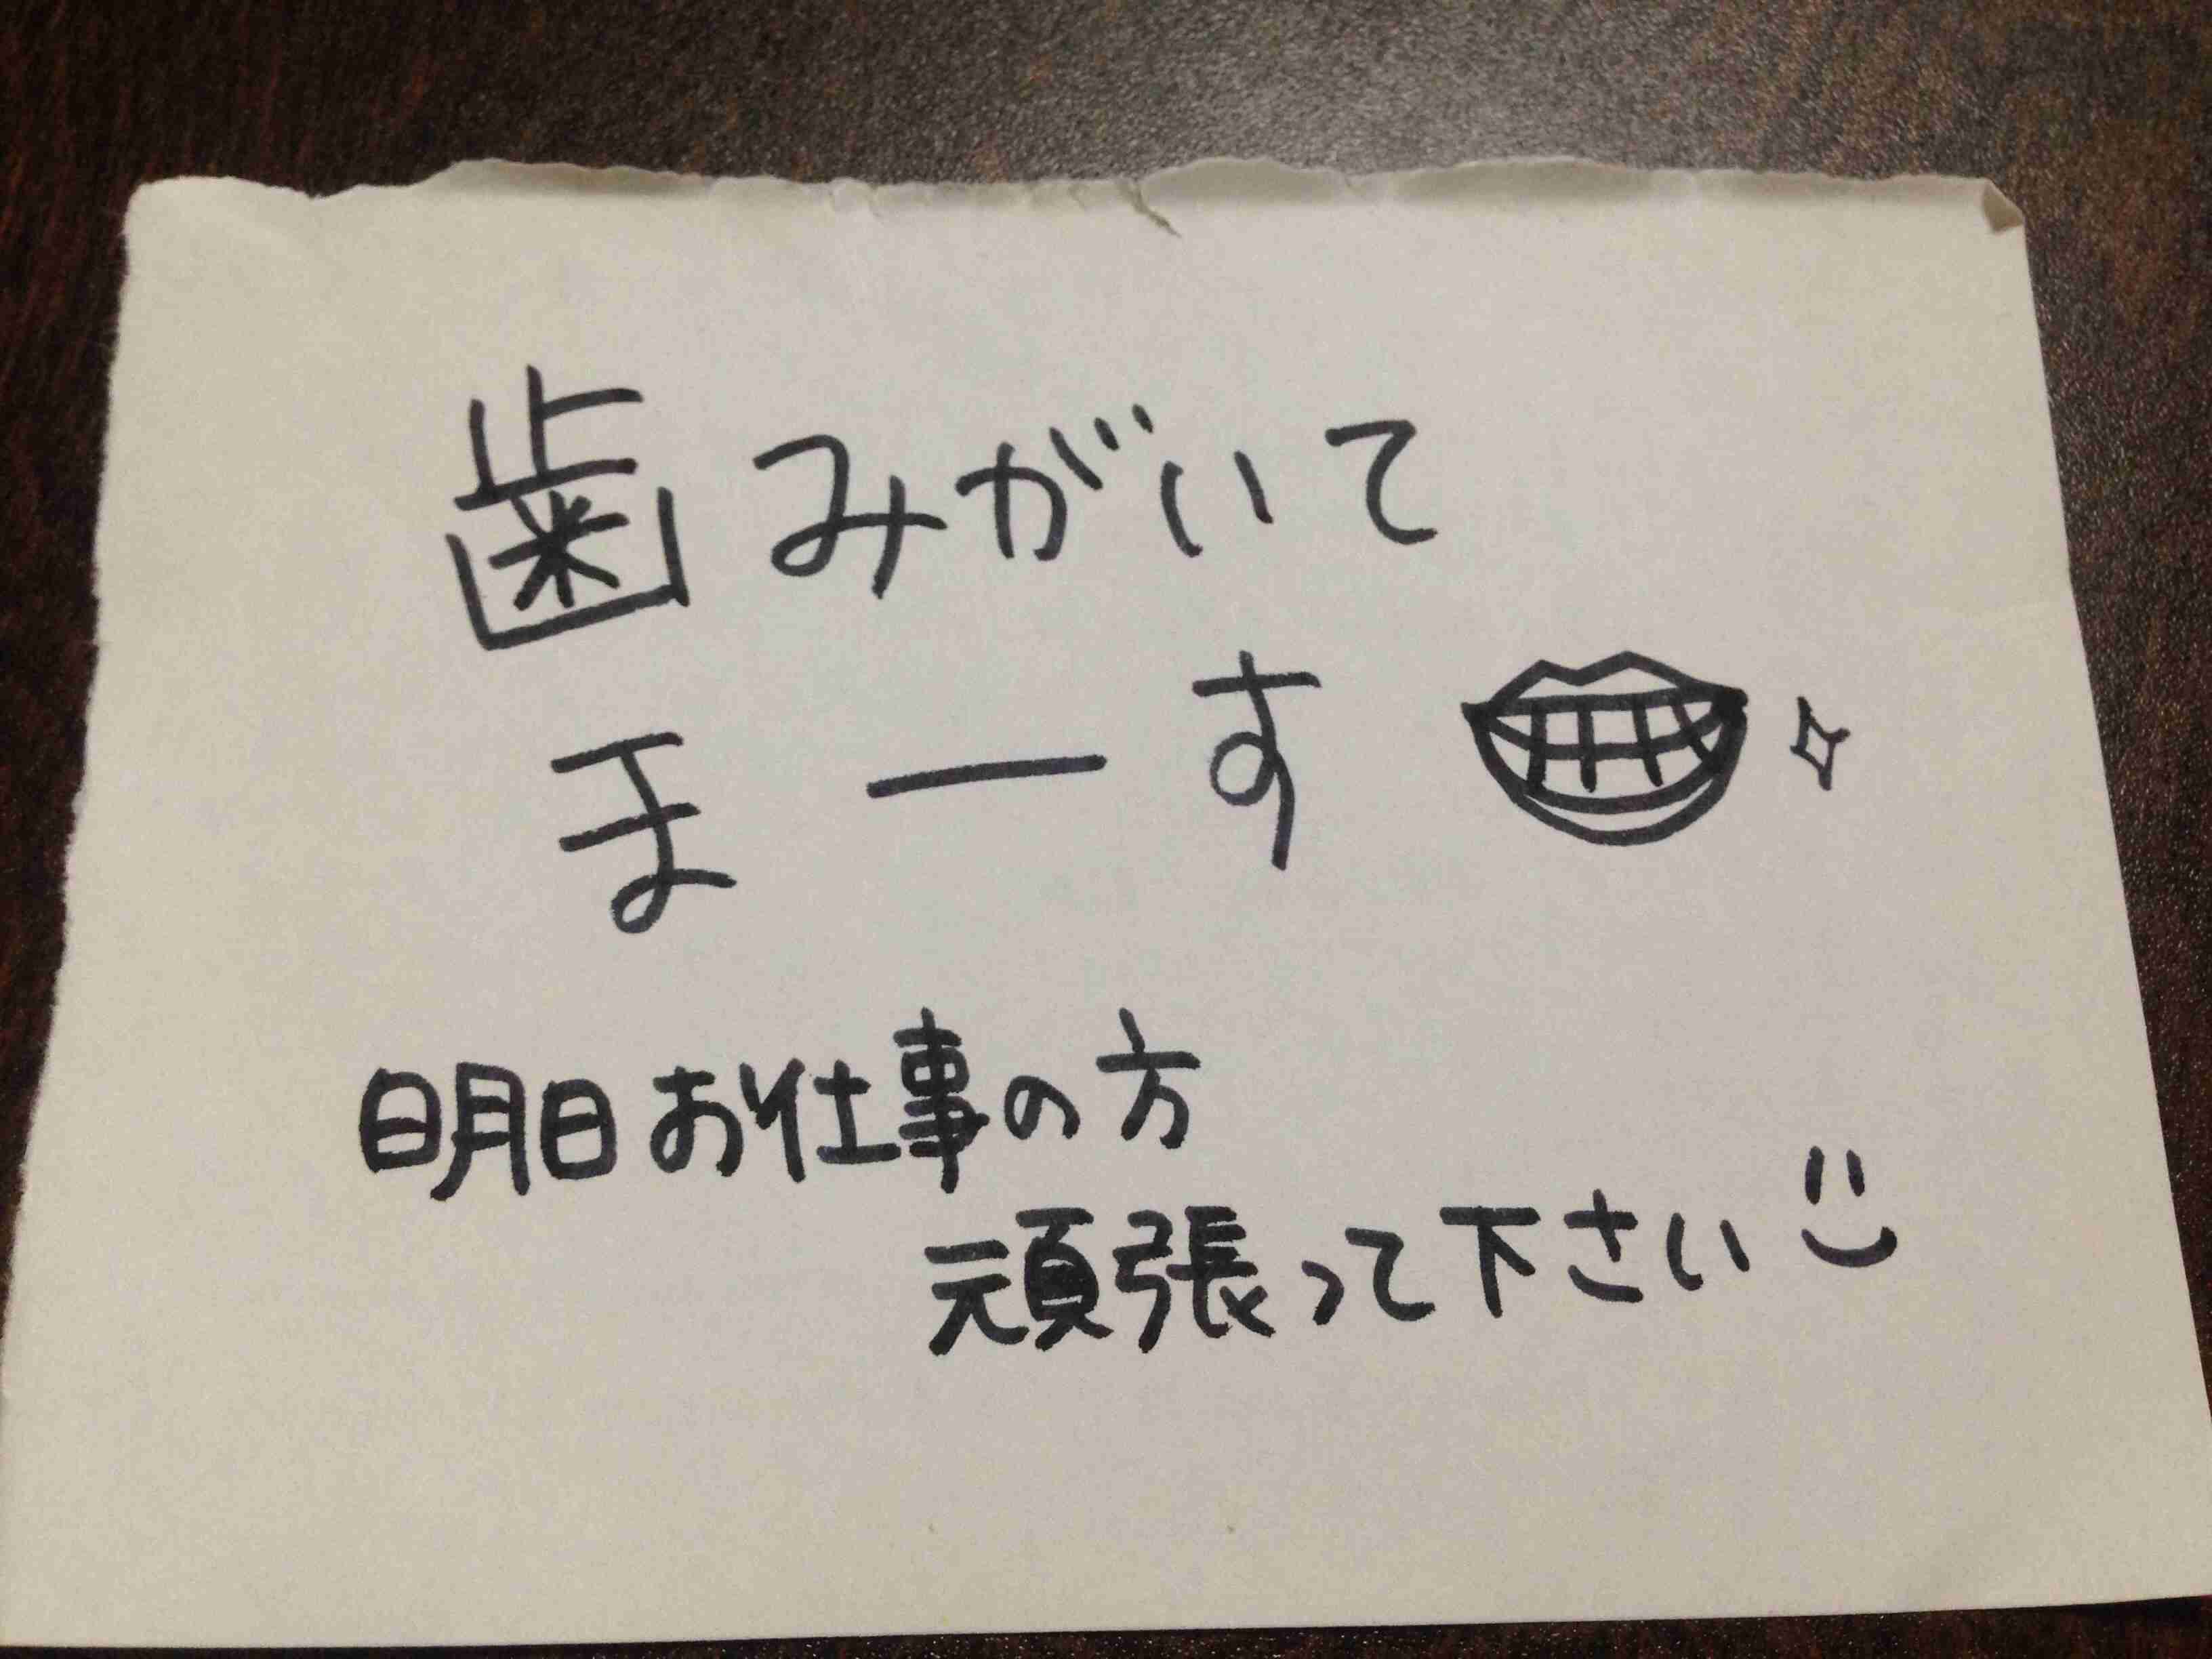 歯みがいて
まーす
明日お仕事の方
頑張って下さい